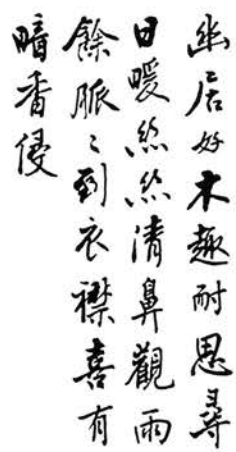 幽居好木趣耐思尋
日暖丝丝清鼻觀雨
餘脈〻到衣襟喜有
暗香侵